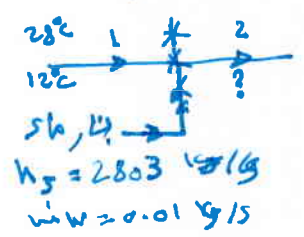 28°C 1 2
12°C ?
h₅ = 2803 kJ/kg
ṁw = 0.01 kg/s